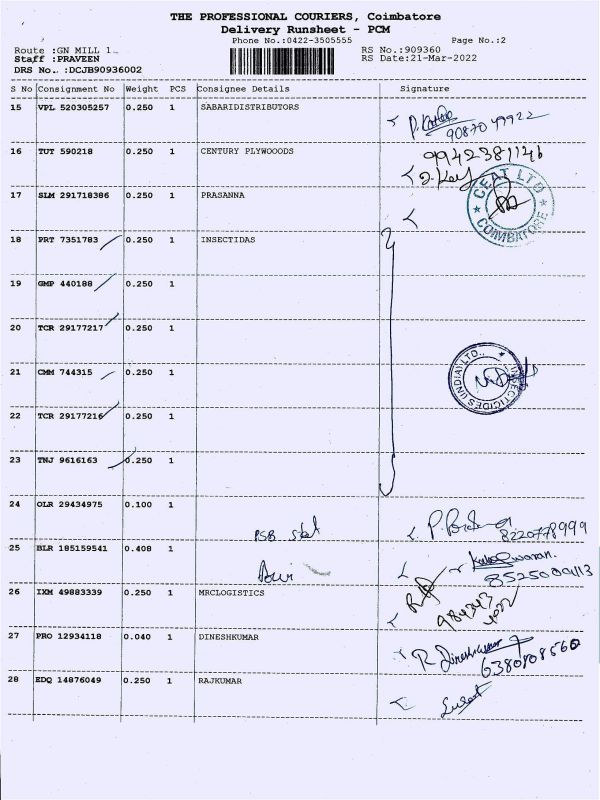 THE PROFESSIONAL COURIERS, Coimbatore
Delivery Runsheet - PCM
Phone No.:0422-3505555 Page No.:2
Route :GN MILL 1 RS No.:909360
Staff :PRAVEEN RS Date:21-Mar-2022
DRS No. :DCJB90936002
S No Consignment No Weight PCS Consignee Details Signature
15 VPL 520305257 0.250 1 SABARIDISTRIBUTORS
9087049922
16 TUT 590218 0.250 1 CENTURY PLYWOOODS
9942381146
17 SLM 291718386 0.250 1 PRASANNA
CEAT LTD
COIMBATORE
18 PRT 7351783 0.250 1 INSECTIDAS
19 GMP 440188 0.250 1
20 TCR 29177217 0.250 1
21 CMM 744315 0.250 1
INSECTICIDES (INDIA) LTD.
22 TCR 29177216 0.250 1
23 TNJ 9616163 0.250 1
24 OLR 29434975 0.100 1
8220778999
25 BLR 185159541 0.408 1
26 IXM 49883339 0.250 1 MRCLOGISTICS
27 PRO 12934118 0.040 1 DINESHKUMAR
R. Dineshkumar
6380808560
28 EDQ 14876049 0.250 1 RAJKUMAR